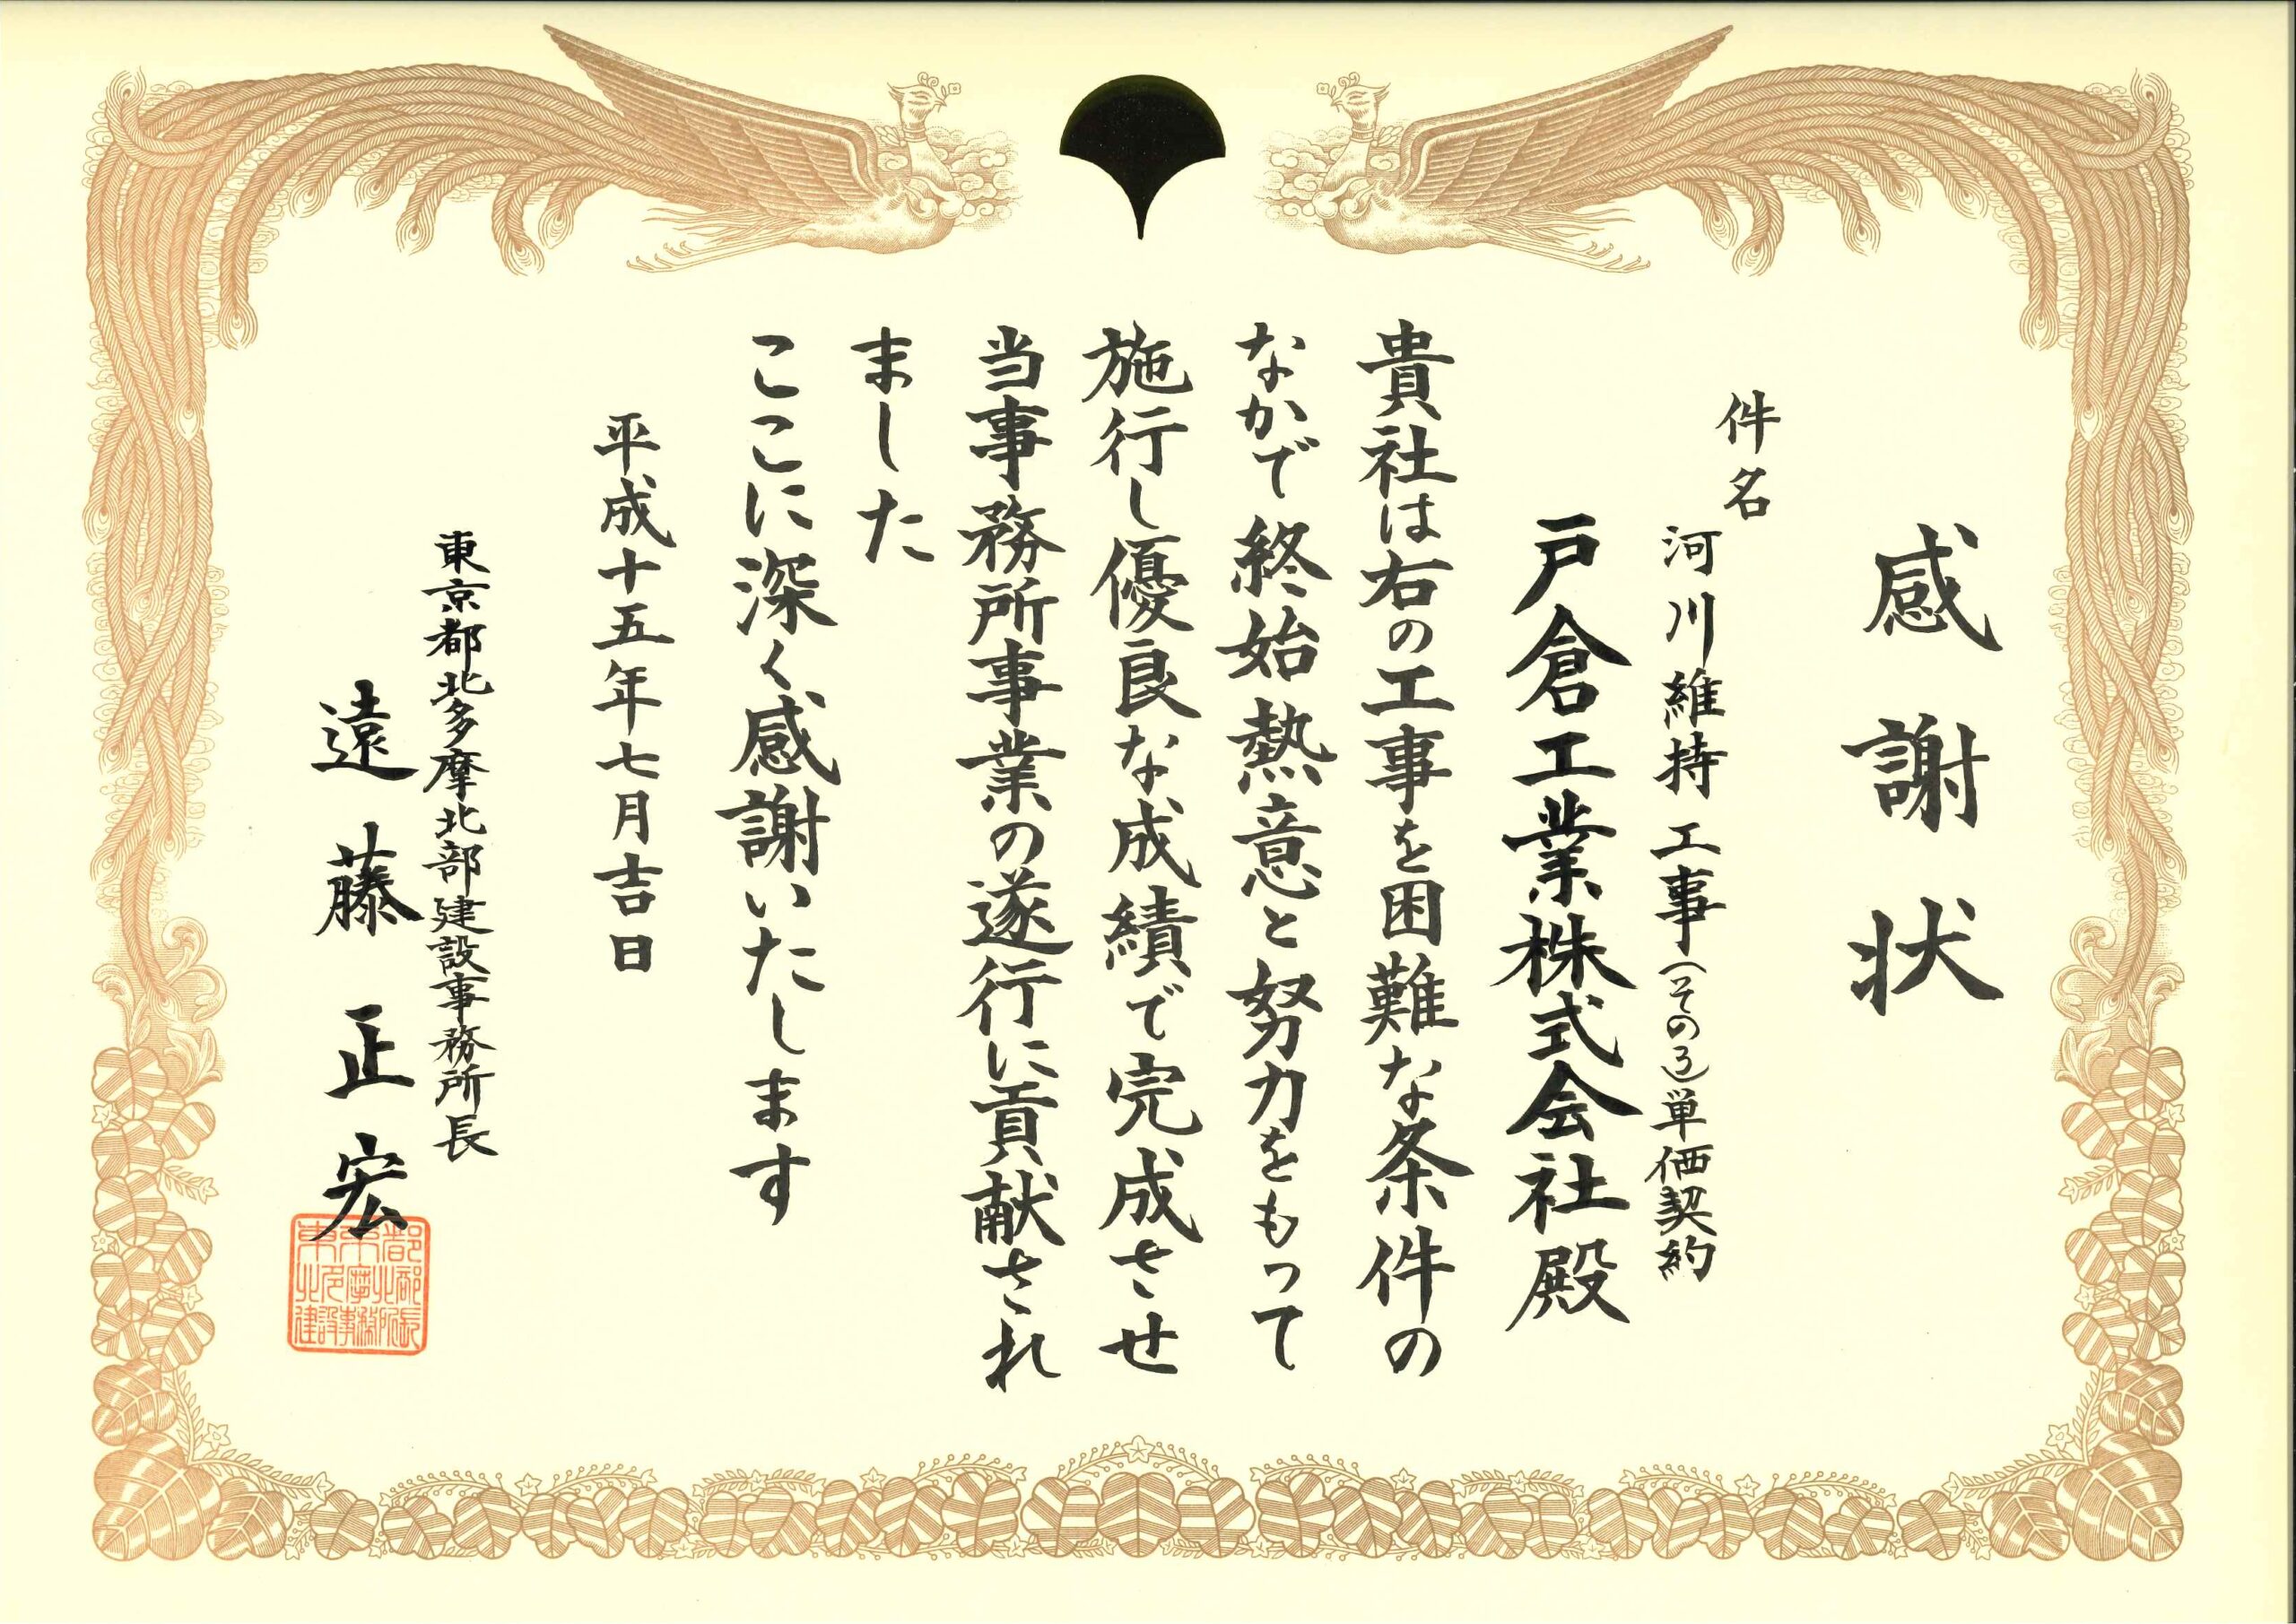 感謝状
件名
河川維持工事(その3)単価契約
戸倉工業株式会社殿
貴社は右の工事を困難な条件の
なかで終始熱意と努力をもって
施行し優良な成績で完成させ
当事務所事業の遂行に貢献され
ました
ここに深く感謝いたします
平成十五年七月吉日
東京都北多摩北部建設事務所長
遠藤正宏